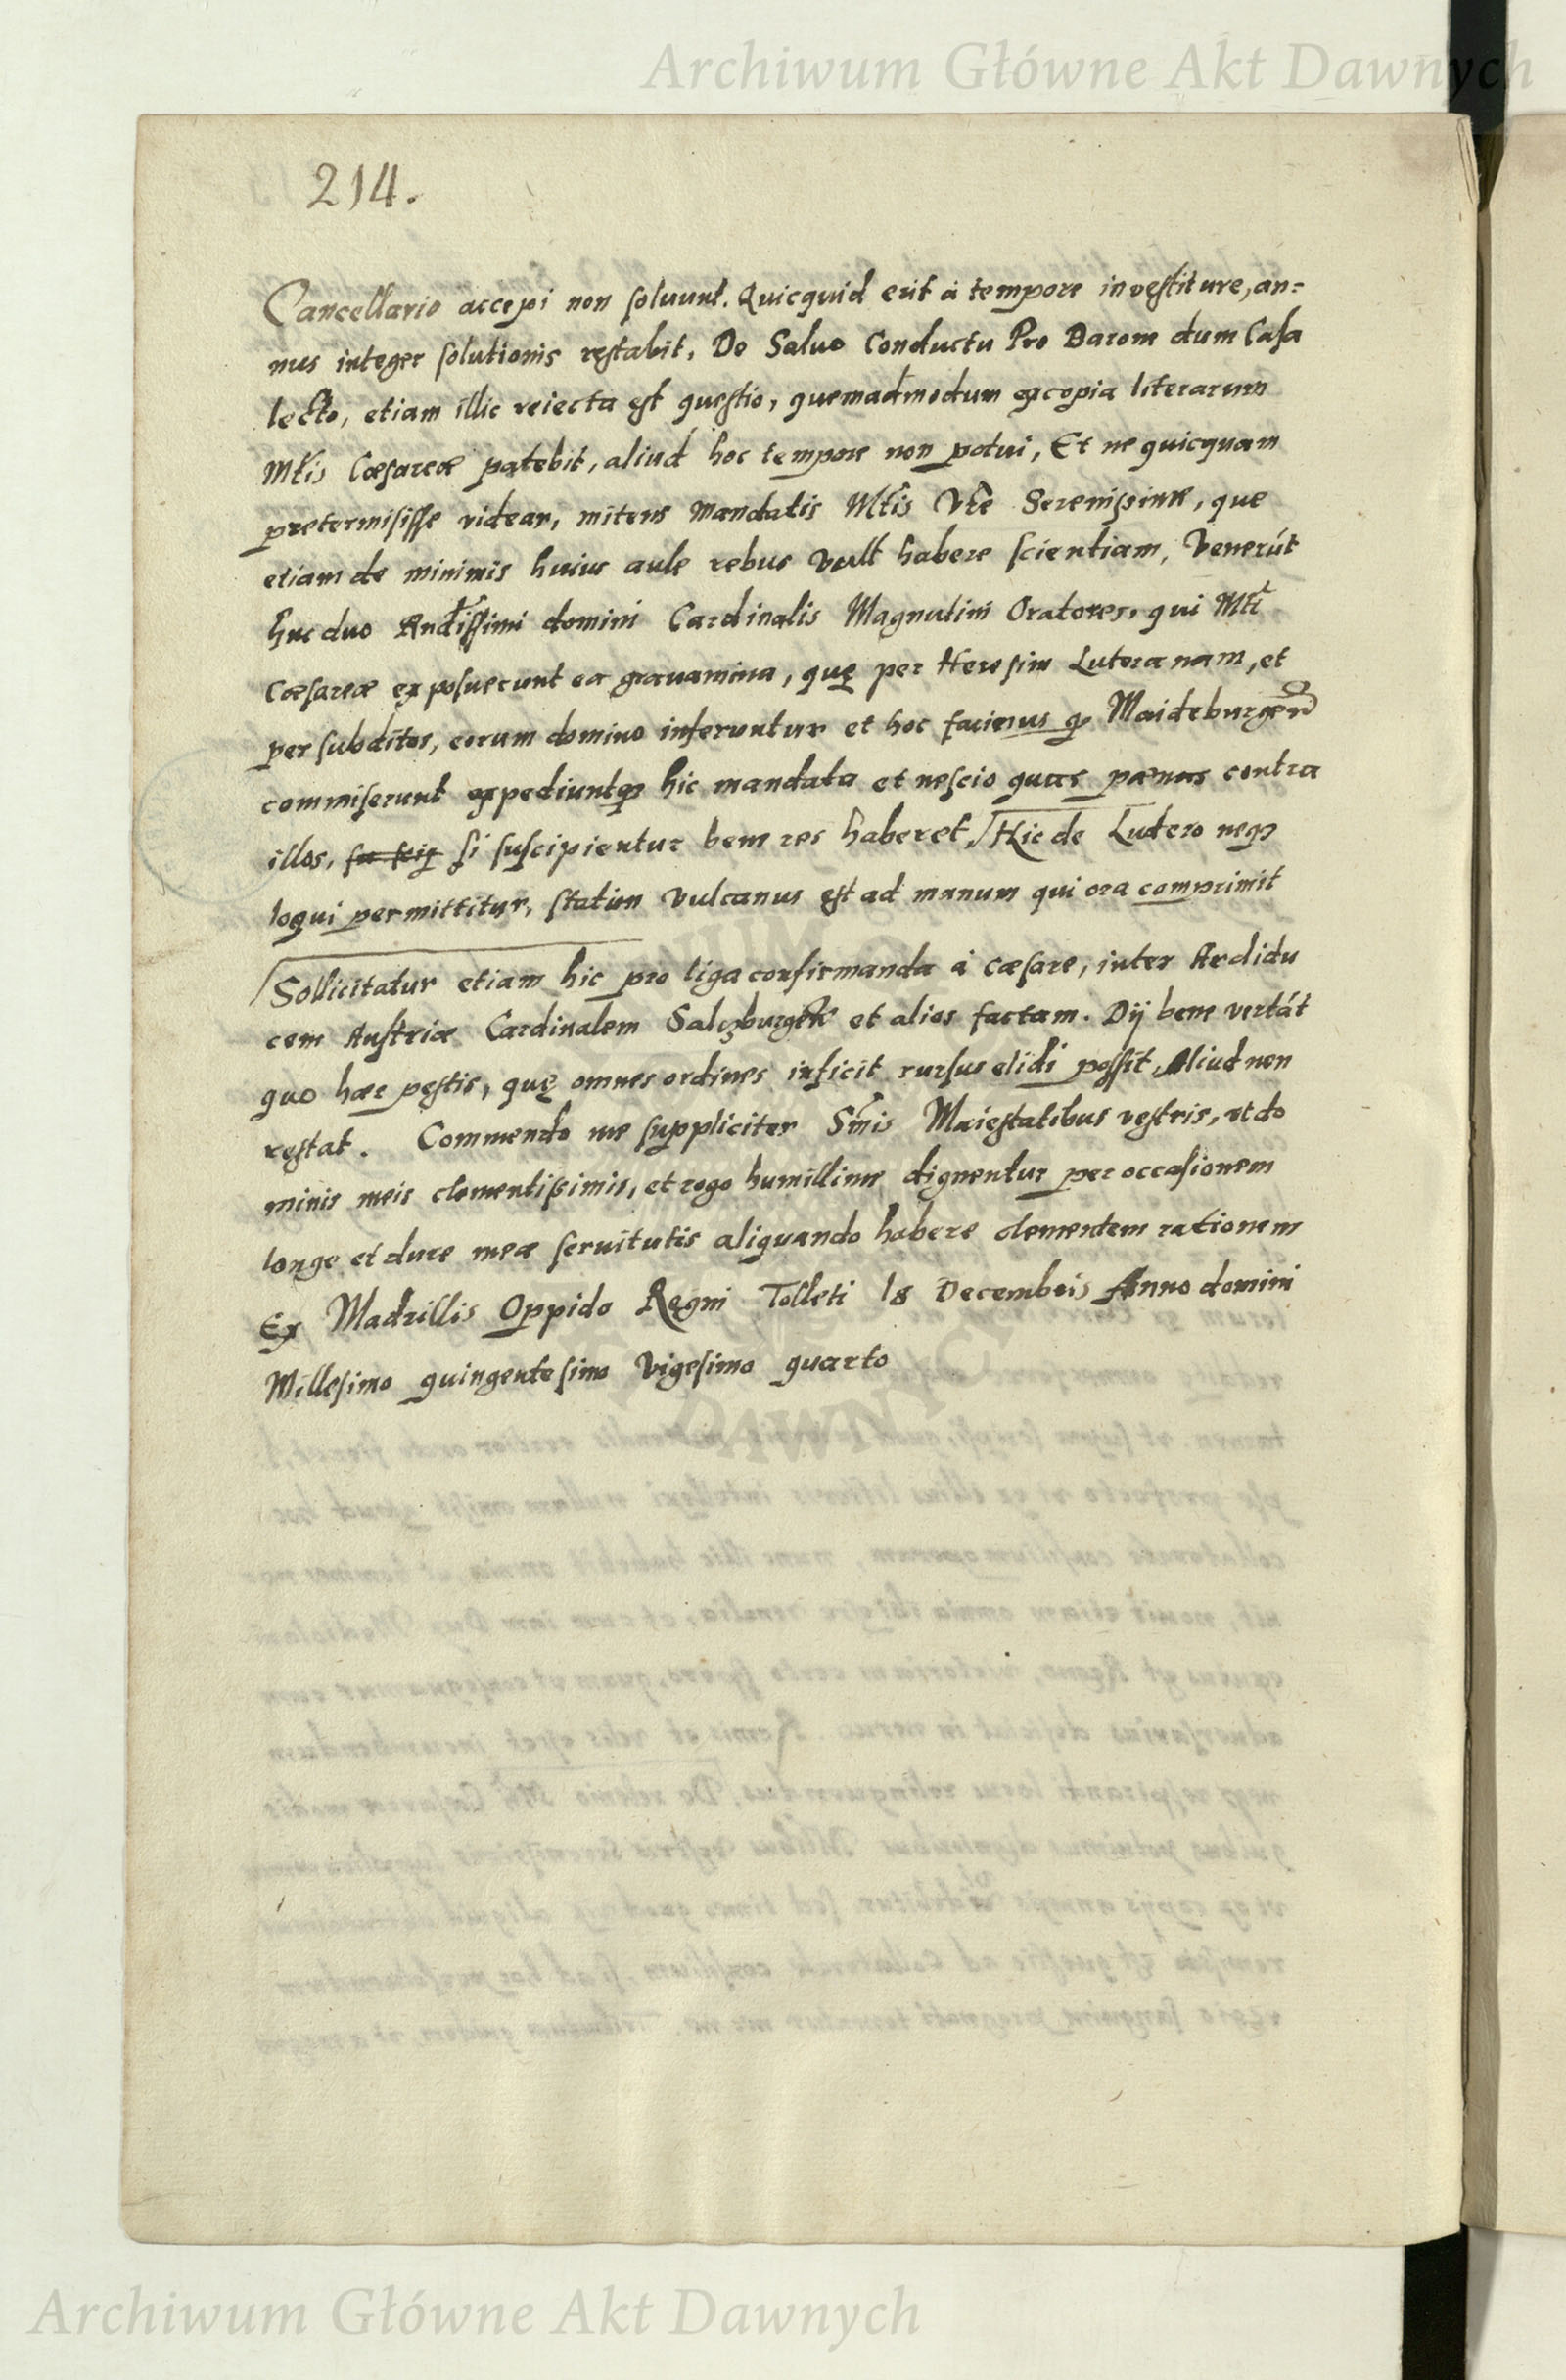 Archiwum Główne Akt Dawnych
214.
Cancellario accepi non soluunt. Quicquid erit à tempore investiture, an=
nus integer solutionis restabit, De Salvo Conductu Pro Barone dum Casa
lecto, etiam illic reiecta est questio, quemadmodum ex copia literarum
Mtis Cæsareæ patebit, aliud hoc tempore non potui, Et ne quicquam
pretermisisse videar, mitens mandatis Mtis Vre Serenissimæ, que
etiam de minimis huius aule rebus vult habere scientiam, Venerút
huc duo Rndissimi domini Cardinalis Magnutini Oratores, qui Mti
Cæsareæ exposuerunt ea grauamina, quę per Heresim Luteranam, et
per subditos, eorum domino inferuntur et hoc facinus q Maideburgen
commiserunt expediuntq hic mandata et nescio quas pænas contra
illos, si suscipientur bene res haberet, Hic de Ludero neq
loqui permittitur, statim Vulcanus est ad manum qui ora comprimit
Sollicitatur etiam hic pro liga confirmanda à Cæsare, inter Archidu
cem Austriæ Cardinalem Salczburgen et alios factam. Dij bene vertát
quo hæc pestis, quę omnes ordines inficit rursus elidi possit, Aliud non
restat. Commendo me suppliciter Smis Maiestatibus vestris, vt do
minis meis clementissimis, et rogo humillime dignentur per occasionem
longe et dure meæ seruitutis aliquando habere clementem rationem
Ex Madrillis Oppido Regni Tolleti 18 Decembris Anno domini
Millesimo quingentesimo Vigesimo quarto
Archiwum Główne Akt Dawnych